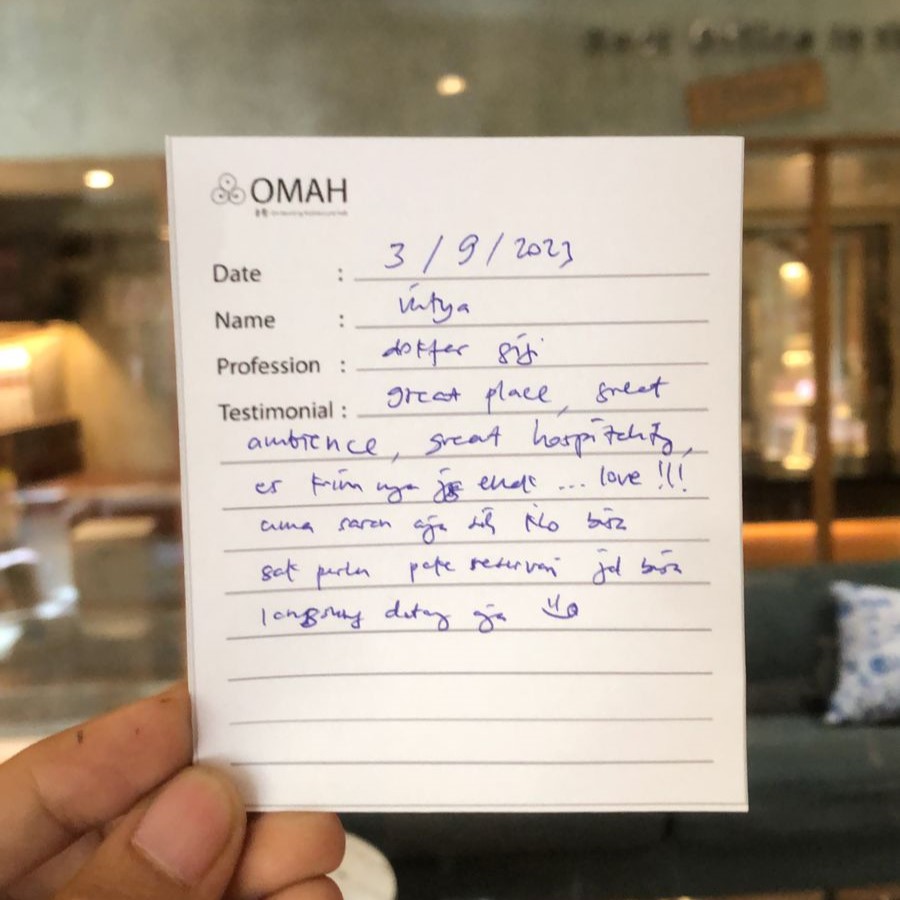 OMAH
Date : 3/9/2023
Name : Vitya
Profession : dokter gigi
Testimonial : great place, great
ambience, great hospitality,
es krim nya jg enak ... love !!!
cuma saran aja sih klo bisa
gak perlu pake reservasi jd bisa
langsung datang aja